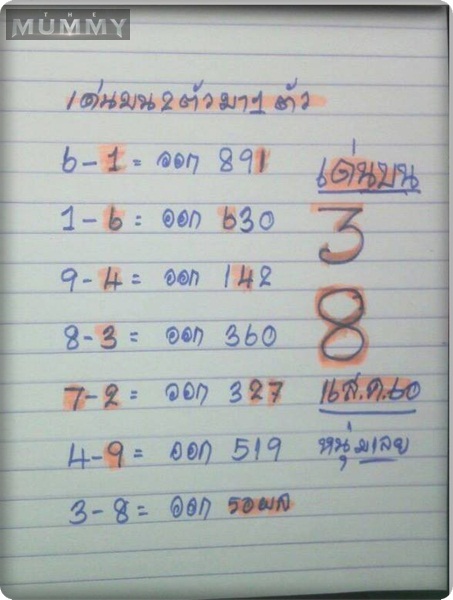 THE
MUMMY
เด่นบน 2 ตัวมา 1 ตัว
6-1 = ออก 891
1-6 = ออก 630
9-4 = ออก 142
8-3 = ออก 360
7-2 = ออก 327
4-9 = ออก 519
3-8 = ออก รอผล
เด่นบน
3
8
16 ส.ค. 60
หนุ่มเลย